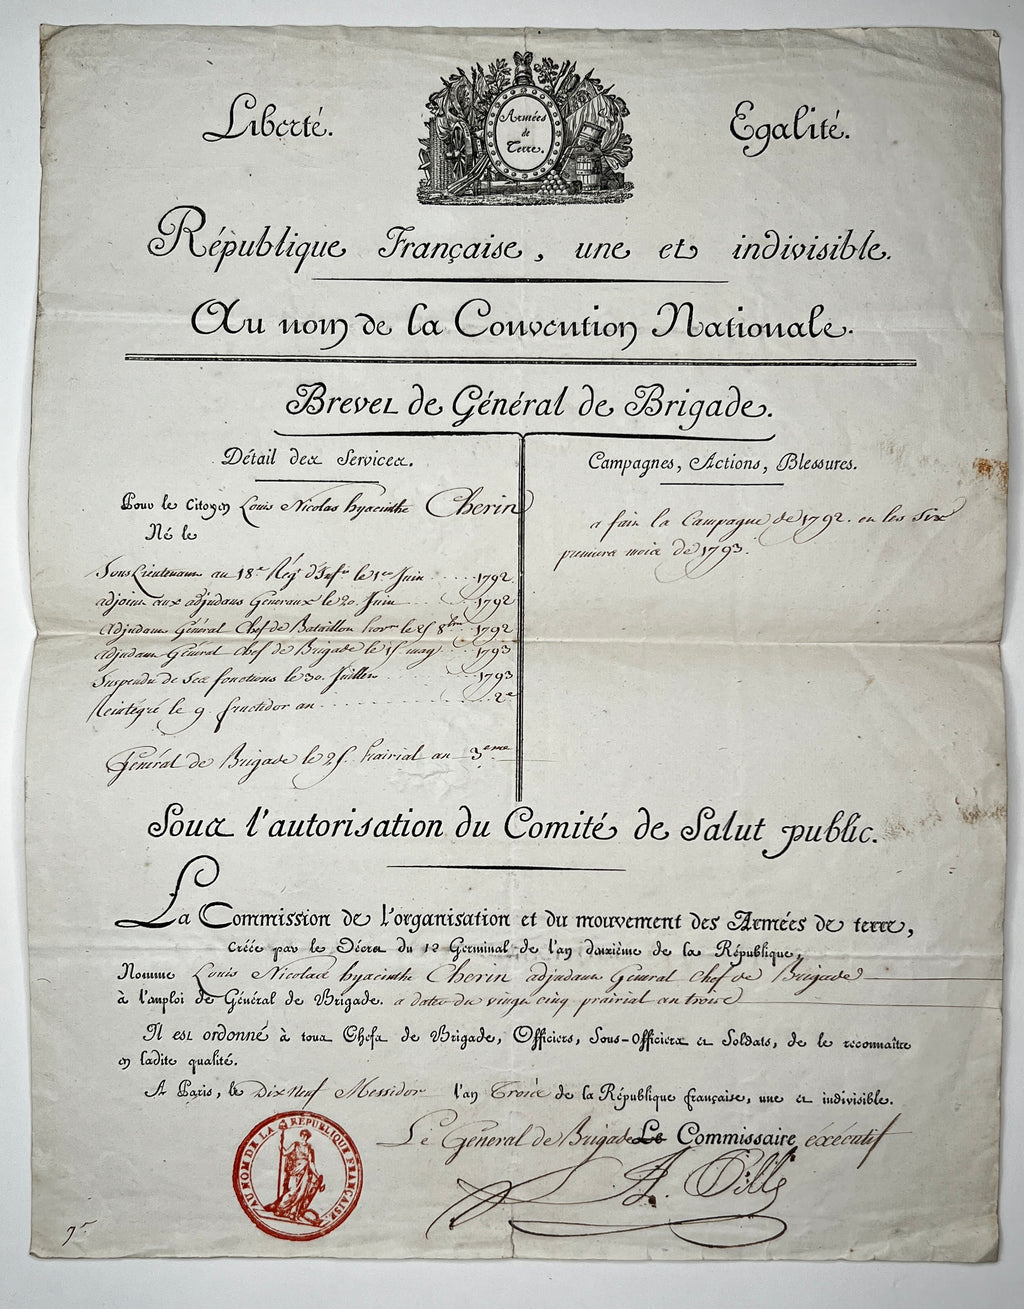 Liberté.
Armées
de
Terre.
Egalité.
République Française, une et indivisible.
Au nom de la Convention Nationale.
Brevet de Général de Brigade.
Détail des Services.
Pour le Citoyen Louis Nicolas hyacinthe Cherin
Né le
Sous Lieutenant au 18e Régt d'Infrie le 1er Juin ..... 1792
adjoint aux adjudans Généraux le 20 Juin ..... 1792
Adjudant Général Chef de Bataillon le 25 8bre 1792
adjudant Général chef de Brigade le 15 may ... 1793
Suspendu de ses fonctions le 30 Juillet ..... 1793
Réintégré le 9 fructidor an ........... 2e
Général de Brigade le 25 prairial an 3eme
Campagnes, Actions, Blessures.
a fait la Campagne de 1792. et les Six
premiers mois de 1793.
Sous l'autorisation du Comité de Salut public.
La Commission de l'organisation et du mouvement des Armées de terre,
créée par le Décret du 12 Germinal de l'an deuxième de la République,
Nomme Louis Nicolas hyacinthe Cherin adjudant Général Chef de Brigade
à l'emploi de Général de Brigade. a dater du vingt cinq prairial an trois
Il est ordonné à tous Chefs de Brigade, Officiers, Sous-Officiers et Soldats, de le reconnaître
en ladite qualité.
A Paris, le Dix neuf Messidor l'an Trois de la République française, une et indivisible.
Le Général de Brigade Le Commissaire exécutif
A. Pille
AU NOM DE LA RÉPUBLIQUE FRANÇAISE.